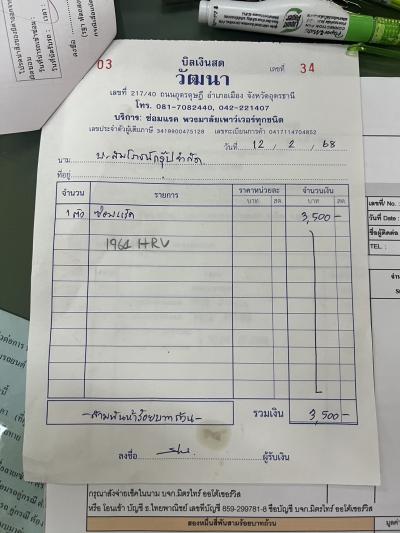 บิลเงินสด
03 วัฒนา เลขที่ 34
เลขที่ 217/40 ถนนอุดรดุษฎี อำเภอเมือง จังหวัดอุดรธานี
โทร. 081-7082440, 042-221407
บริการ: ซ่อมแรค พวงมาลัยเพาเวอร์ทุกชนิด
เลขประจำตัวผู้เสียภาษี 3419900475128 เลขทะเบียนการค้า 0417114704852
วันที่ 12 / 2 / 68
นาม
ที่อยู่
จำนวน รายการ ราคาหน่วยละ จำนวนเงิน
บาท สต. บาท สต.
1 ตัว ซ่อมแร็ค 3,500-
1961 HRV
-สามพันห้าร้อยบาทถ้วน- รวมเงิน 3,500-
ลงชื่อ ผู้รับเงิน
เลขที่/ No. :
วันที่/ Date :
ชื่อผู้ติดต่อ
TEL :
กรุณาสั่งจ่ายเช็คในนาม บจก.มิตรไทร์ ออโต้เซอร์วิส
หรือ โอนเข้า บัญชี ธ.ไทยพาณิชย์ เลขที่บัญชี 859-299781-8 ชื่อบัญชี บจก.มิตรไทร์ ออโต้เซอร์วิส
สองหมื่นสี่พันสามร้อยบาทถ้วน